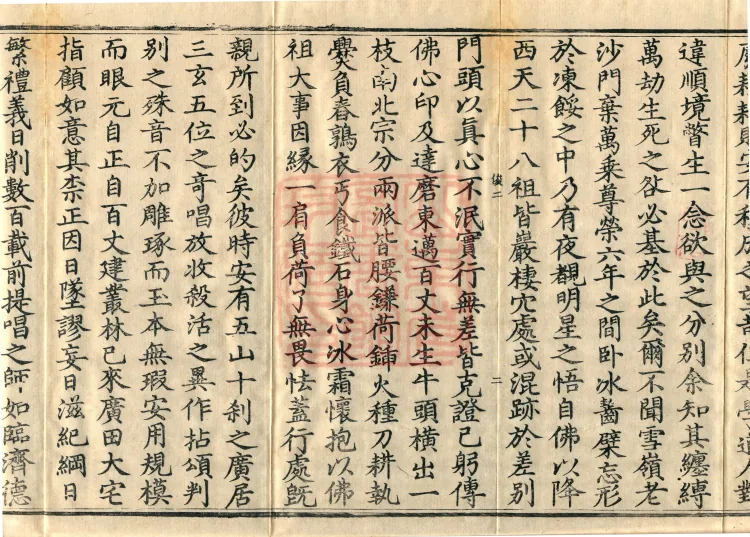 違順境瞥生一念欲與之分別余知其纏縛
萬劫生死之咎必基於此矣爾不聞雪嶺老
沙門棄萬乘尊榮六年之間卧冰齧檗忘形
於凍餒之中乃有夜覩明星之悟自佛以降
西天二十八祖皆巖棲穴處或混跡於差別
二
門頭以眞心不泯實行無差皆克證已躬傳
佛心印及達磨東邁百丈未生牛頭橫出一
枝南北宗分兩派皆腰鎌荷鍤火種刀耕執
爨負舂鶉衣丐食鐵石身心冰霜懷抱以佛
祖大事因緣一肩負荷了無畏怯蓋行處旣
親所到必的矣彼時安有五山十刹之廣居
三玄五位之奇唱放收殺活之異作拈頌判
別之殊音不加雕琢而玉本無瑕安用規模
而眼元自正自百丈建叢林已來廣田大宅
指顧如意其柰正因日墜謬妄日滋紀綱日
繁禮義日削數百載前提唱之師如臨濟德